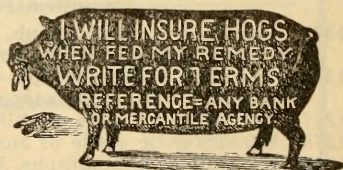 I WILL INSURE HOGS
WHEN FED MY REMEDY
WRITE FOR TERMS
REFERENCE=ANY BANK
OR MERCANTILE AGENCY.